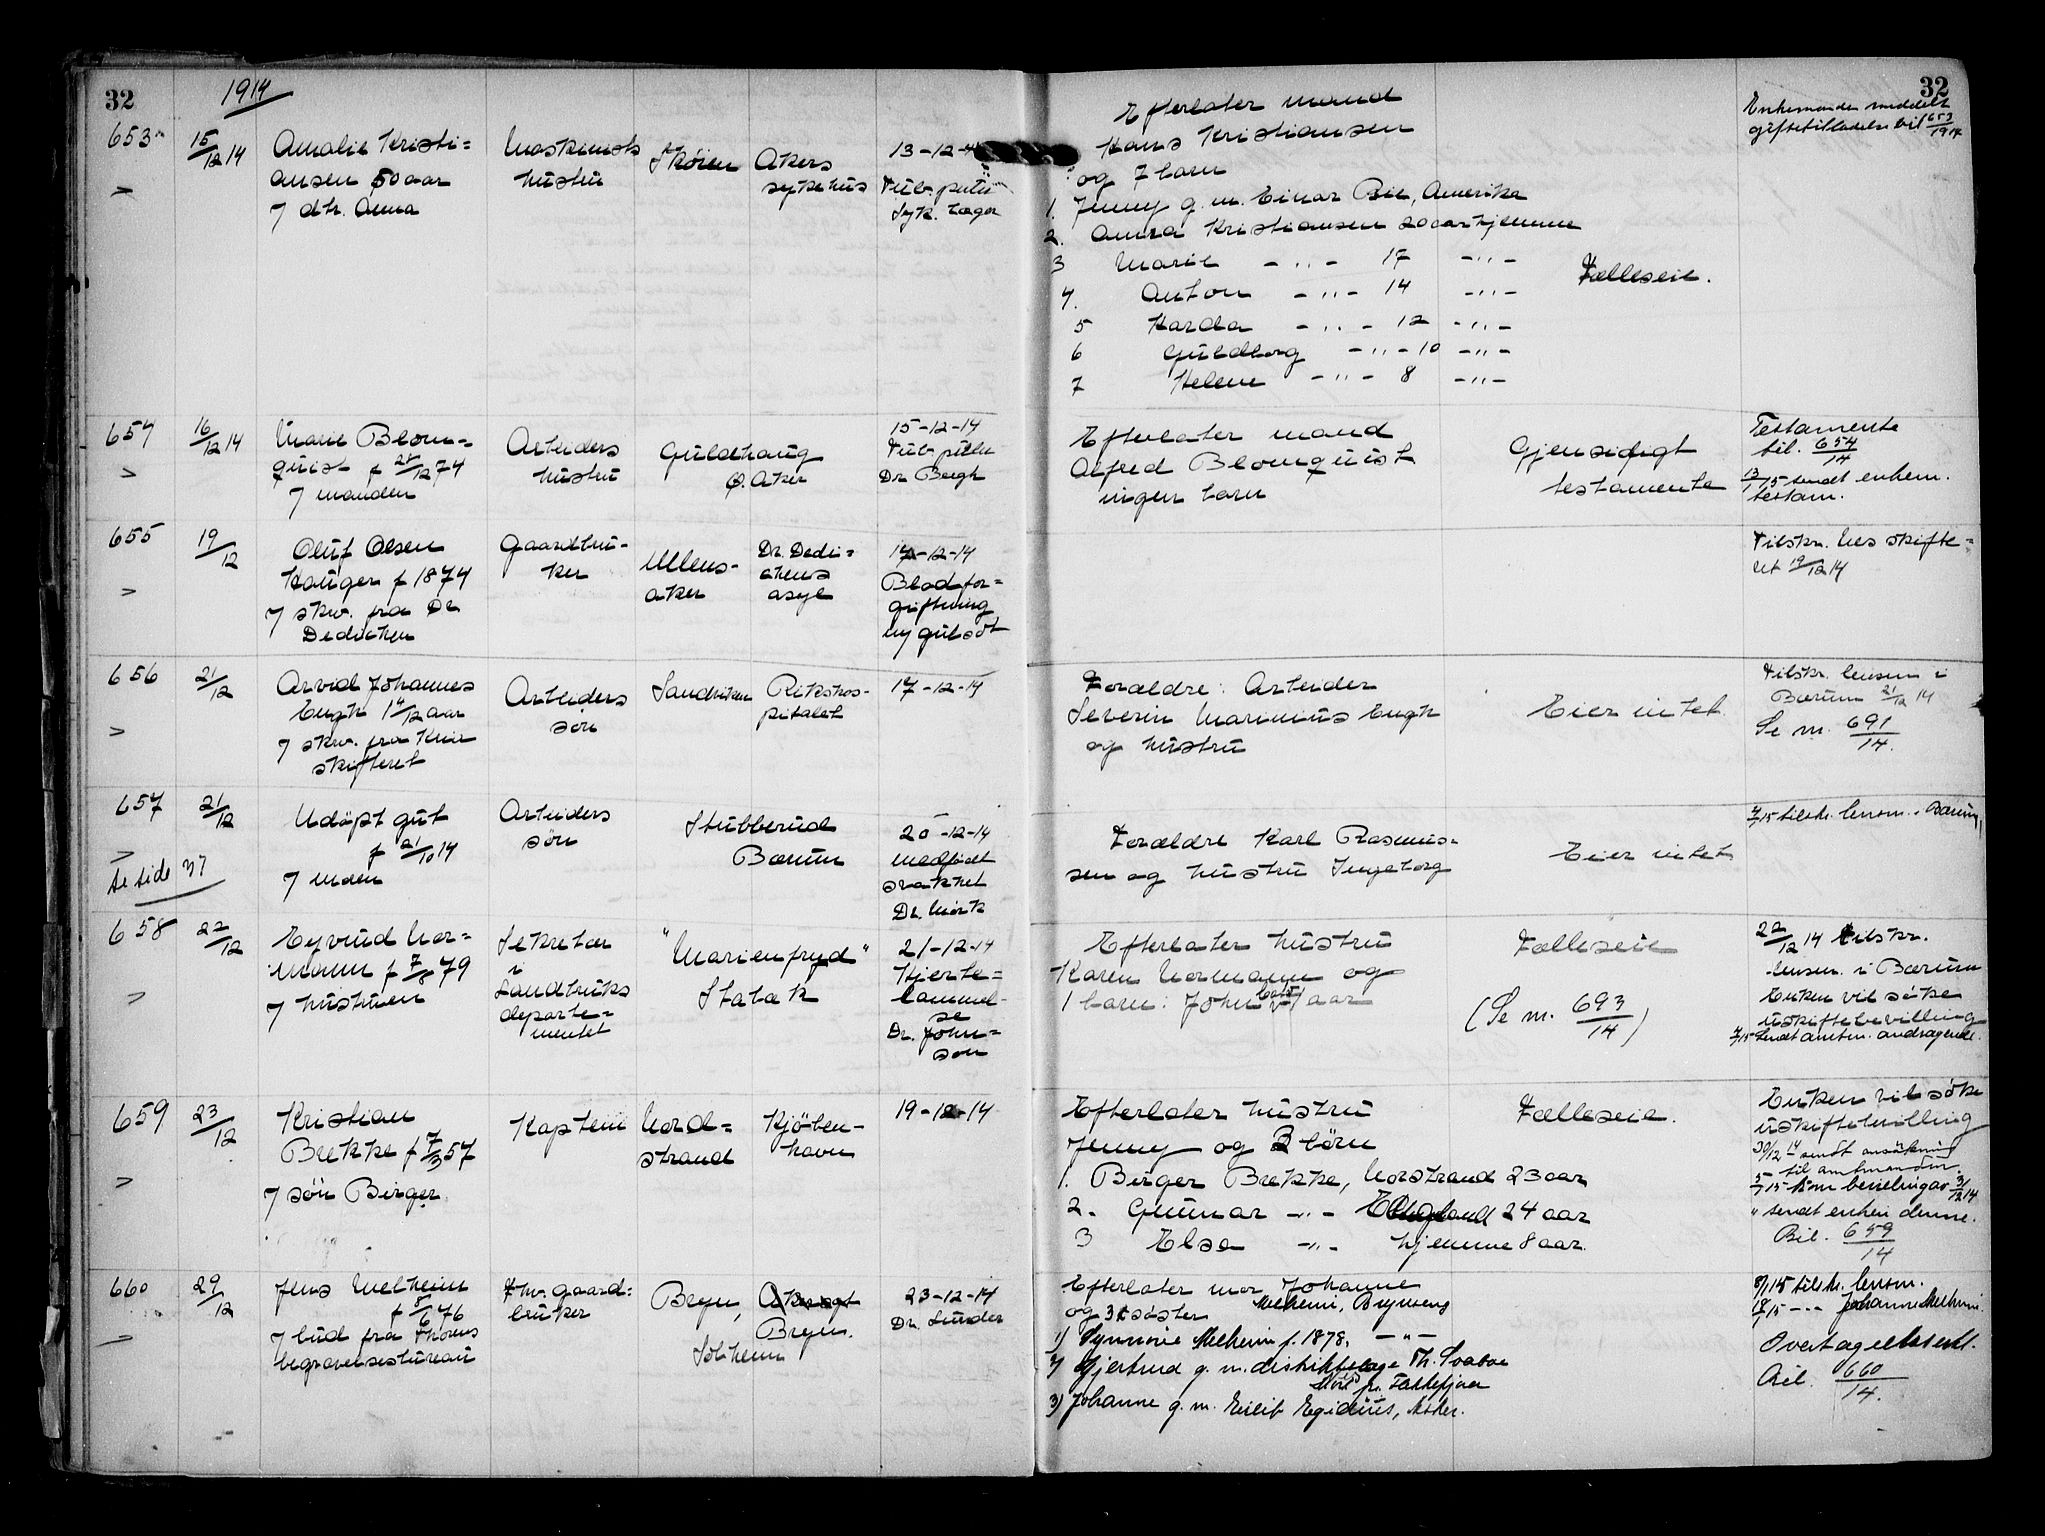 32
1914
32
653
15/12 14
Amalie Kristi=
ansen 50 aar
7 dtr. Anna
Maskinists
hustru
Skøien
Akers
sykehus
13-12-14
Tub. pulm
Syk. læger
Efterlater mand
Hans Kristiansen
og 7 barn
1. Jenny g. m. Einar Bie, Amerika
2. Anna Kristiansen 20 aar hjemme
3 Marie -"- 17 -"-
4. Anton -"- 14 -"-
5 Harda -"- 12 -"-
6 Guldborg -"- 10 -"-
7 Helene -"- 8 -"-
Fælleseie.
Enkemanden meddelt
giftetilladelse bil 653/1914
654
16/12 14
Marie Blom=
quist f 28/12 74
7 manden
Arbeiders
hustru
Guldhaug
Ø. Aker
15-12-14
Tub. pulm
Dr. Bergh
Efterlater mand
Alfred Blomquist
ingen barn
Gjensidigt
testamente
Testamente
bil. 654/14
13/1 15 sendt enkem.
testam.
655
19/12
Oluf Olsen
Hauger f 1874
7 skr. fra Dr
Dedichen
Gaardbru-
ker
Ullens-
aker
Dr. Dedi=
chens
asyl
14-12-14
Blodfor=
giftning
og gulsot
Tilskr. Nes skifte=
ret 19/12 14
656
21/12
Arvid Johannes
Engh 1 4/12 aar
7 skr. fra Kria
skifteret
Arbeiders
søn
Sandviken
Rikshos-
pitalet
17-12-14
Forældre: Arbeider
Severin Marinius Engh
og hustru
Eier intet
Tilskr. lensm i
Bærum 21/12 14
Se m. 691/14.
657
21/12
Se side 37
Udøpt gut
f 21/10 14
7 moren
Arbeiders
søn
Stubberud
Bærum
20-12-14
medfødt
svakhet
Dr. Mørk
Forældre Karl Rasmus=
sen og hustru Ingeborg
Eier intet
4/1 15 tilskr. lensm. i Bærum
658
22/12
Eyvind Nor=
mann f 7/8 79
7 hustruen
Sekretær
i
Landbruks
departe=
mentet
"Marienfryd"
Stabæk
21-12-14
Hjerte=
lammel-
se
Dr. John=
son
Efterlater hustru
Karen Normann og
1 barn: John aar
Fælleseie
(Se m. 693/14)
22/12 14 tilskr.
lensm. i Bærum
Enken vil søke
uskiftebevilling
4/1 15 sendt amtm. andragende.
659
23/12
Kristian
Brekke f 7/3 57
7 søn Birger
Kaptein
Nord=
strand
Kjøben-
havn
19-12-14
Efterlater hustru
Jenny og 3 børn
1. Birger Brekke, Norstrand 23 aar
2. Gunnar -"- England 24 aar
3 Elsa -"- hjemme 8 aar.
Fælleseie.
Enken vil søke
uskiftebevilling
30/12 14 sendt ansökning
til amtmanden.
5/1 15 kom bevilling av 31/12 14
" sendt enken denne.
Bil. 659/14
660
29/12
Jens Melheim
f 8/6 76
7 bud fra Thorns
begravelsesbureau
Fhv. gaard=
bruker
Bryn,
Bryn.
Solheim
23-12-14
Dr. Sunder
Efterlater mor Johanne
Melheim, Brynseng
og 3 søster
1) Synnøve Melheim f. 1878. -"-
2) Gjertrud g. m. distriktslæge Th. Svaboe
3) Johanne g. m. Eilif Egidius, Asker.
8/1 15 tilskr. lensm.
18/1 15 -"- Johanne Melheim
Overtagelseserkl.
Bil. 660/14.